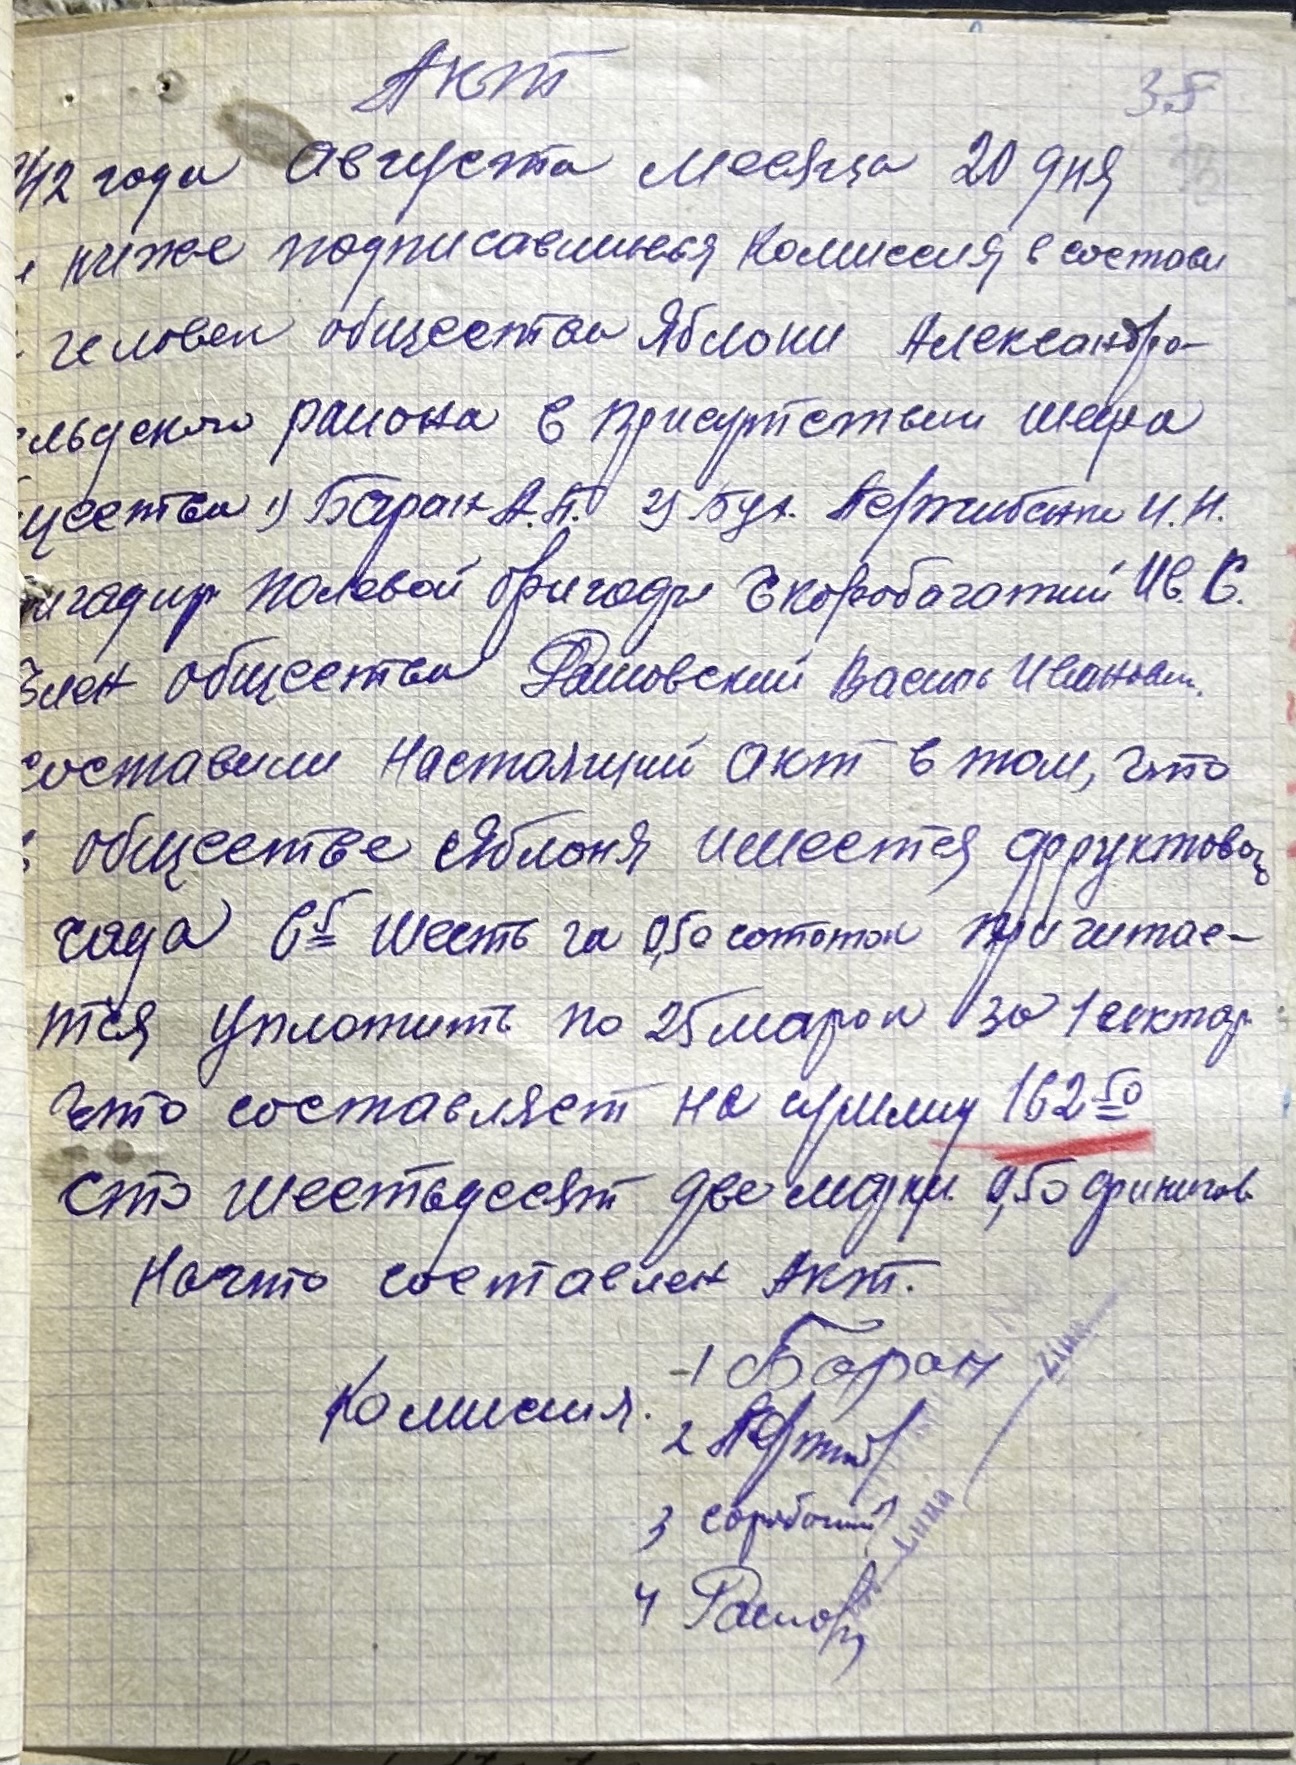 Акт
38
42 года августа месяца 20 дня
ниже подписавшиеся Комиссия в состави
человек общества Яблони Александро-
льдского района в присутствии шефа
щества 1) Баран А.П. 2) Бух. И.Н.
игадир полевой бригады Скоробагатий Ив. С.
Член общества Рашовский Василь Иванович.
составили настоящий акт в том, что
обществе Яблоня имеется фруктового
сада 6,5 шесть га 0,50 сототок причитае-
тся уплотить по 25 марок за 1 гектар
что составляет на сумму 162 50
сто шестьдесят две марки 0,50 финигов
На что составлен Акт.
Комисия.
1 Баран
2
3
4